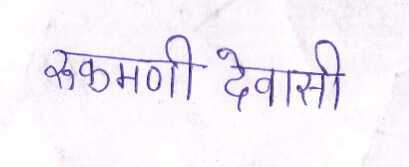 रुकमणी देवासी